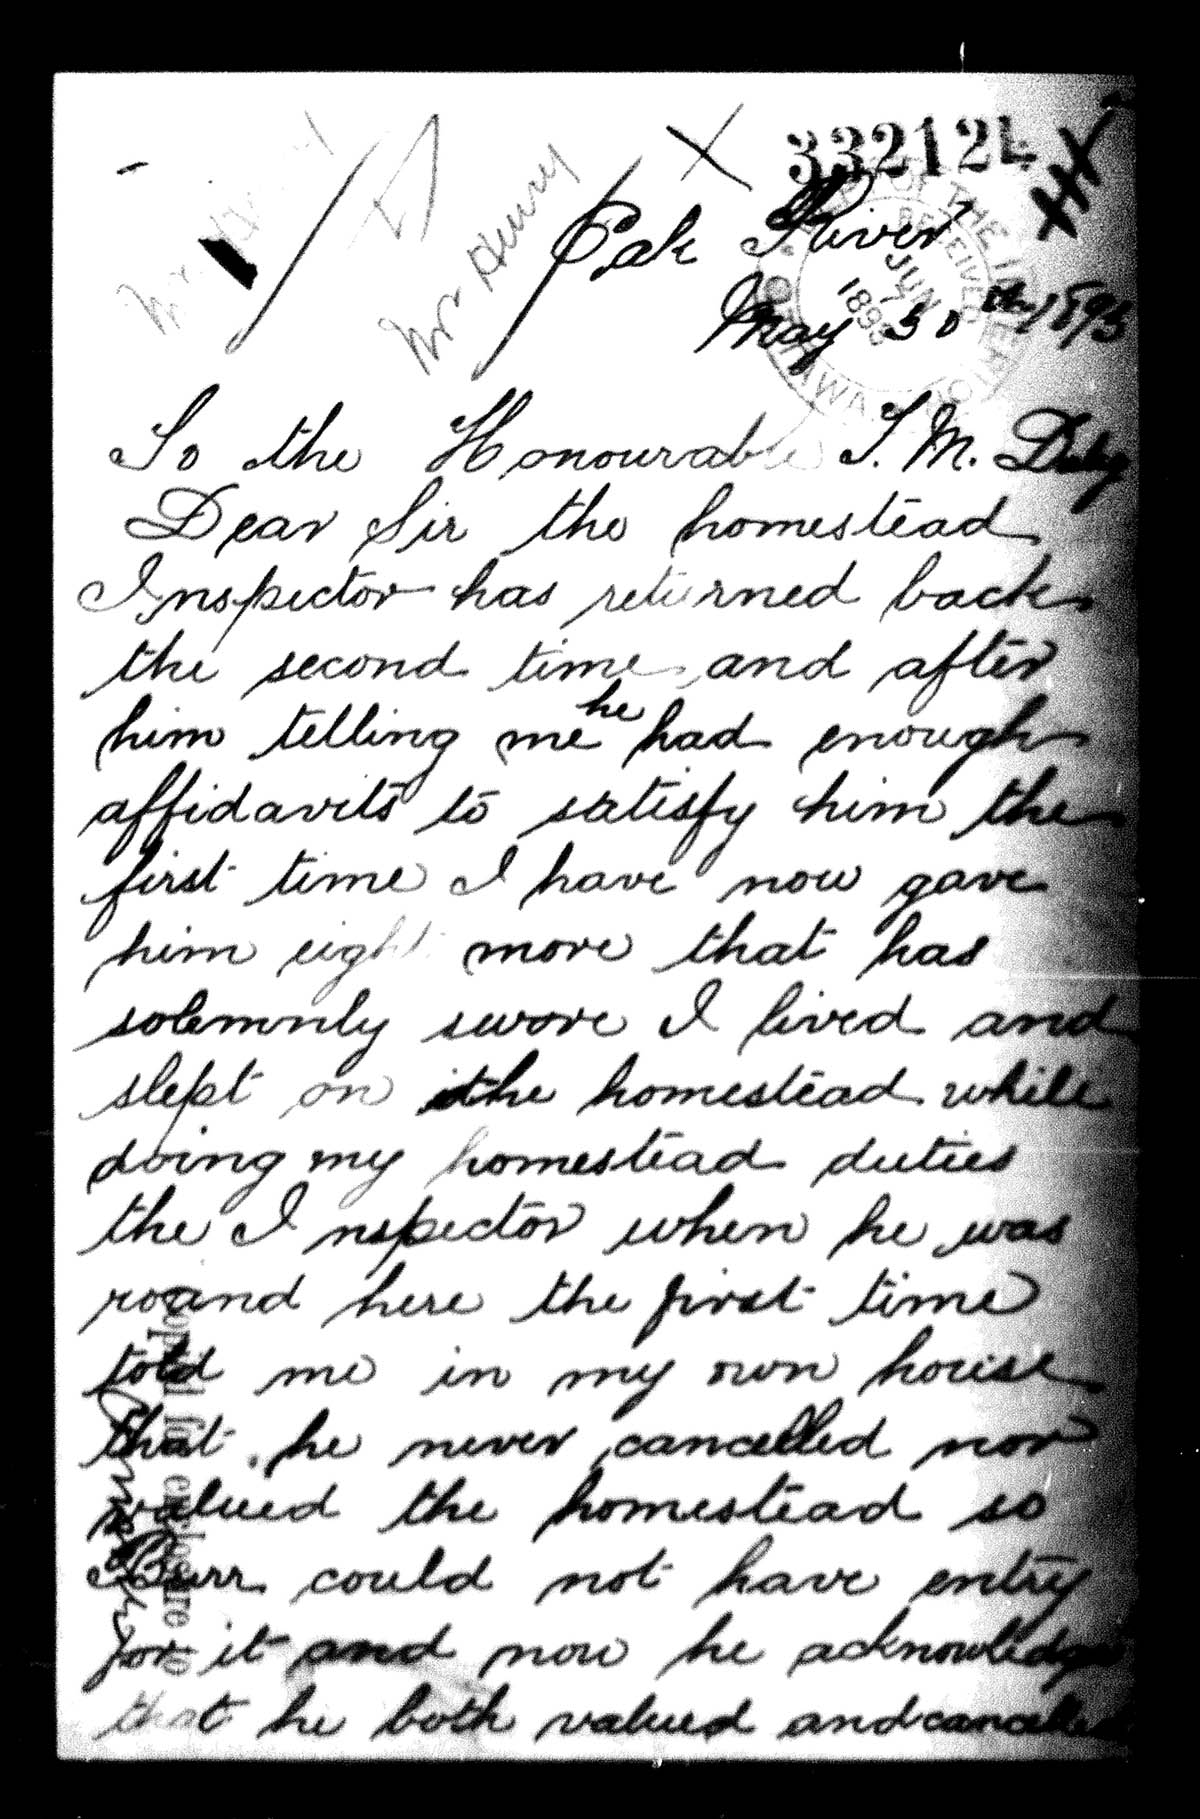 332124
Mr Henry
Oak River
May 30th 1893
DEPT OF THE INTERIOR OTTAWA
RECEIVED
JUN
1893
To the Honourable T. M. Daly
Dear Sir the homestead
Inspector has returned back
the second time and after
him telling me he had enough
affidavits to satisfy him the
first time I have now gave
him eight more that has
solemnly swore I lived and
slept on the homestead while
doing my homestead duties
the Inspector when he was
round here the first time
told me in my own house
that he never cancelled nor
valued the homestead so
Burr could not have entry
for it and now he acknowledge
that he both valued and cancelled
Copied for enclosure to